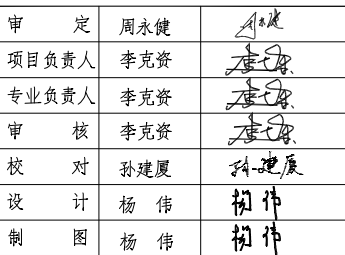 审 定 周永健 周永健
项目负责人 李克资
专业负责人 李克资
审 核 李克资
校 对 孙建厦 孙建厦
设 计 杨 伟 杨伟
制 图 杨 伟 杨伟